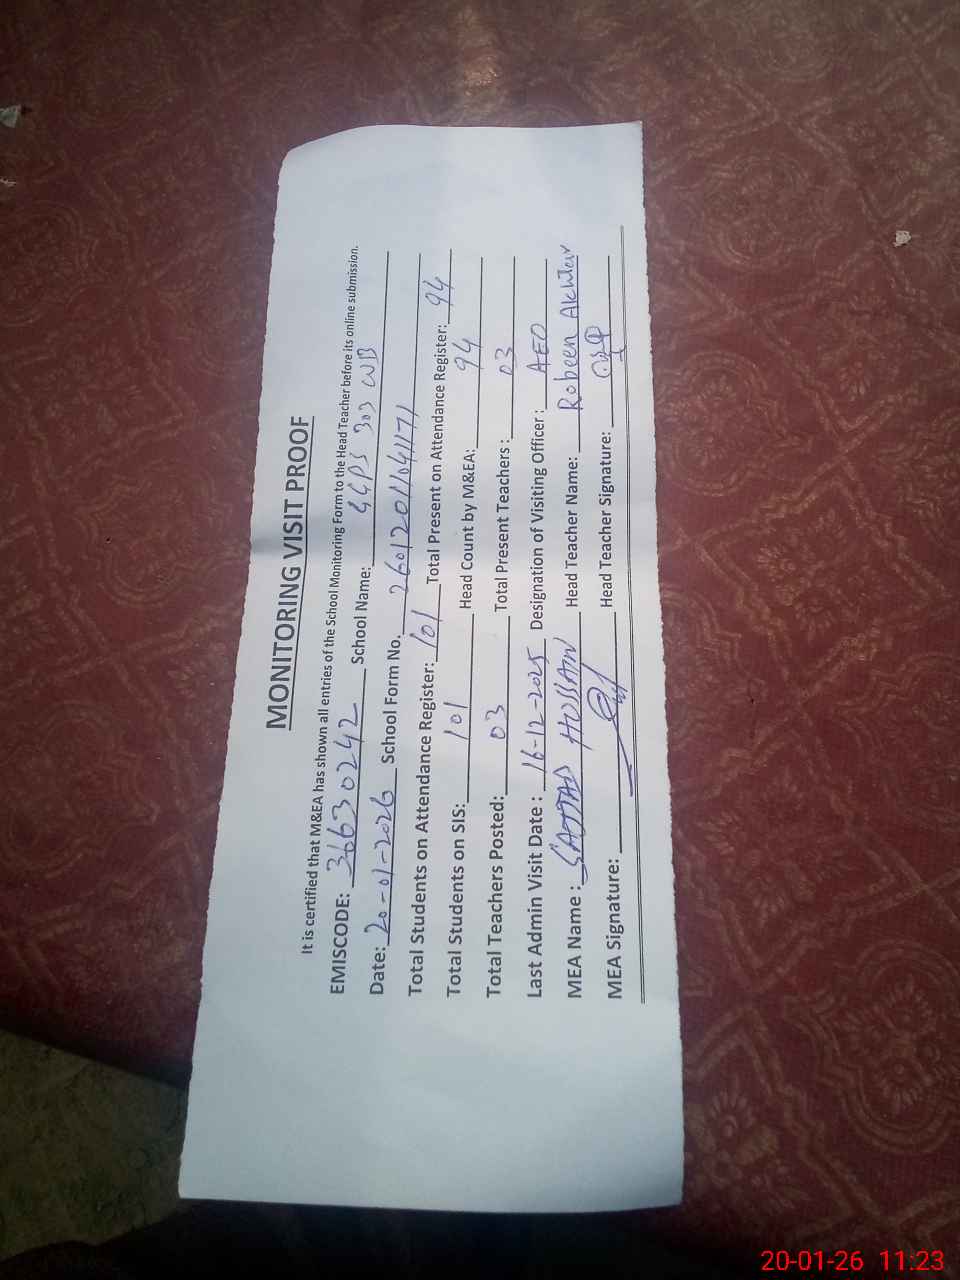 MONITORING VISIT PROOF
It is certified that M&EA has shown all entries of the School Monitoring Form to the Head Teacher before its online submission.
EMISCODE: 36630242 School Name: GGPS 303 WB
Date: 20-01-2026 School Form No. 26012011041171
Total Students on Attendance Register: 101 Total Present on Attendance Register: 94
Total Students on SIS: 101 Head Count by M&EA: 94
Total Teachers Posted: 03 Total Present Teachers: 03
Last Admin Visit Date: 16-12-2025 Designation of Visiting Officer: AEO
MEA Name: SAJJAD HUSSAIN Head Teacher Name: Robeen Akhtar
MEA Signature: Head Teacher Signature:
20-01-26 11:23